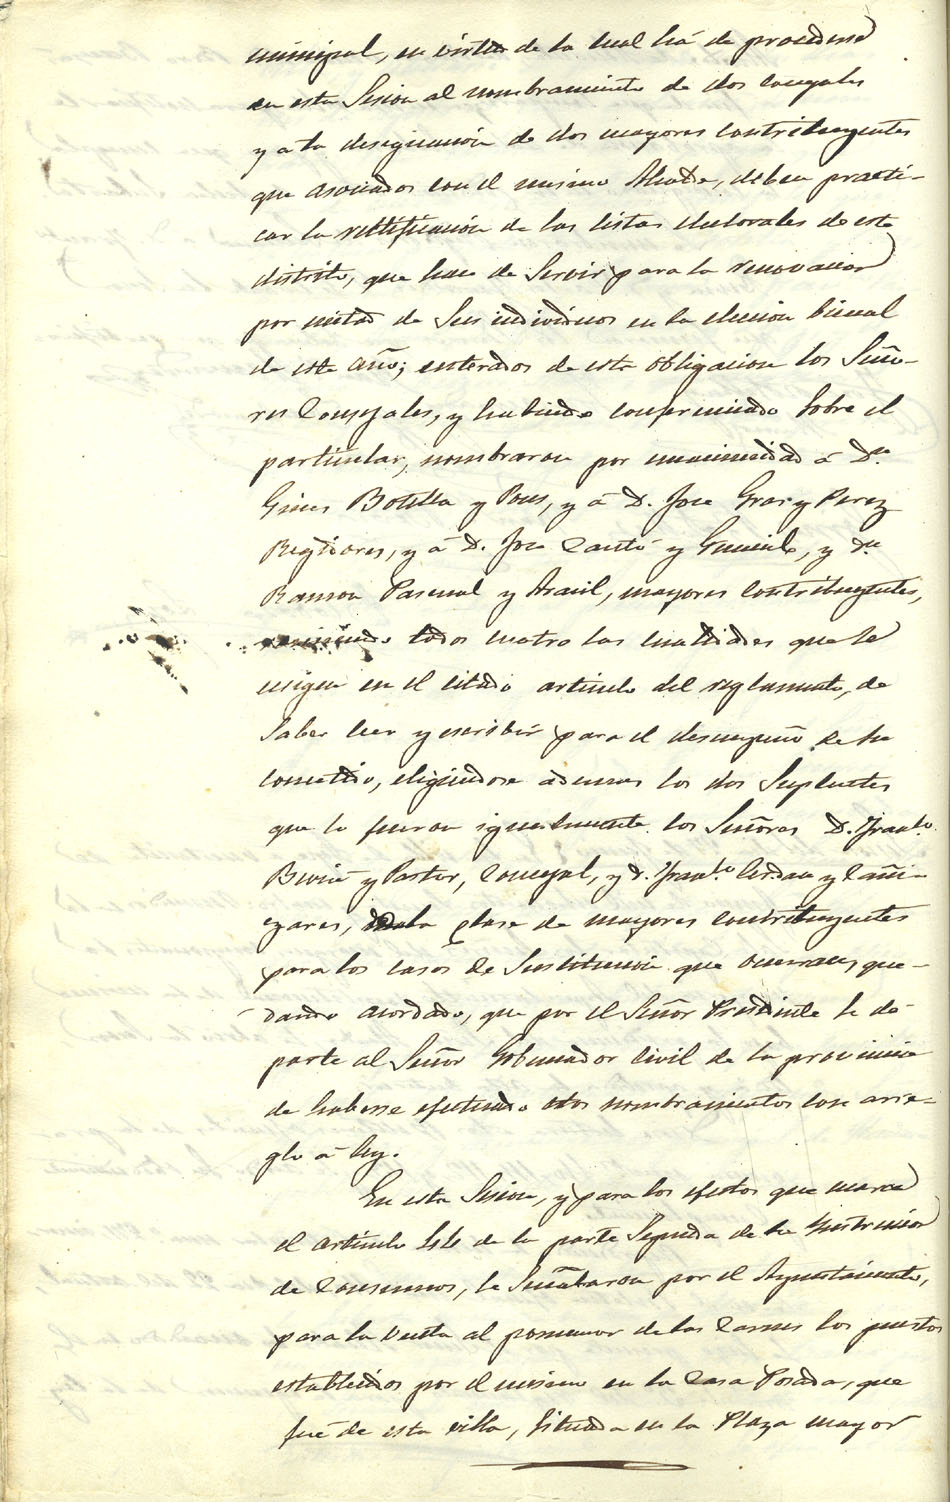 municipal, en virtud de la cual há de procederse
en esta Sesion al nombramiento de dos concejales
y a la designacion de dos mayores contribuyentes
que asociados con el mismo Alcalde, deben practi-
car la rectificacion de las listas electorales de este
distrito, que han de Servir para la renovacion
por mitad de Sus individuos en la eleccion bienal
de este año; enterados de esta obligacion los Seño-
res Concejales, y habiendo conferenciado Sobre el
particular, nombraron por unanimidad á Dn
Gines Botella y Pons, y á D. Jose Gras y Perez
Regidores, y á D. Jose Cantó y , y Dn
Ramon Pascual y Aracil, mayores contribuyentes,
reuniendo todos cuatro las cualidades que Se
exigen en el citado articulo del reglamento, de
Saber leer y escribir para el desempeño de Su
cometido, eligiendose ademas los dos Suplentes
que lo fueron igualmente los Señores D. Franco
y Pastor, Concejal, y D. Franco Cerdan y Cañi-
zares, de la clase de mayores contribuyentes
para los casos de Sustitucion que ocurran, que-
dando acordado, que por el Señor Presidente Se dé
parte al Señor Gobernador Civil de la provincia
de haberse efectuado estos nombramientos con arre-
glo á ley.
En esta Sesion, y para los efectos que marca
el articulo de la parte Segunda de la Instruccion
de Consumos, Se Señalaron por el Ayuntamiento,
para la venta al pormenor de las Carnes los puestos
establecidos por el mismo en la Casa Posada, que
fué de esta villa, Situada en la Plaza mayor